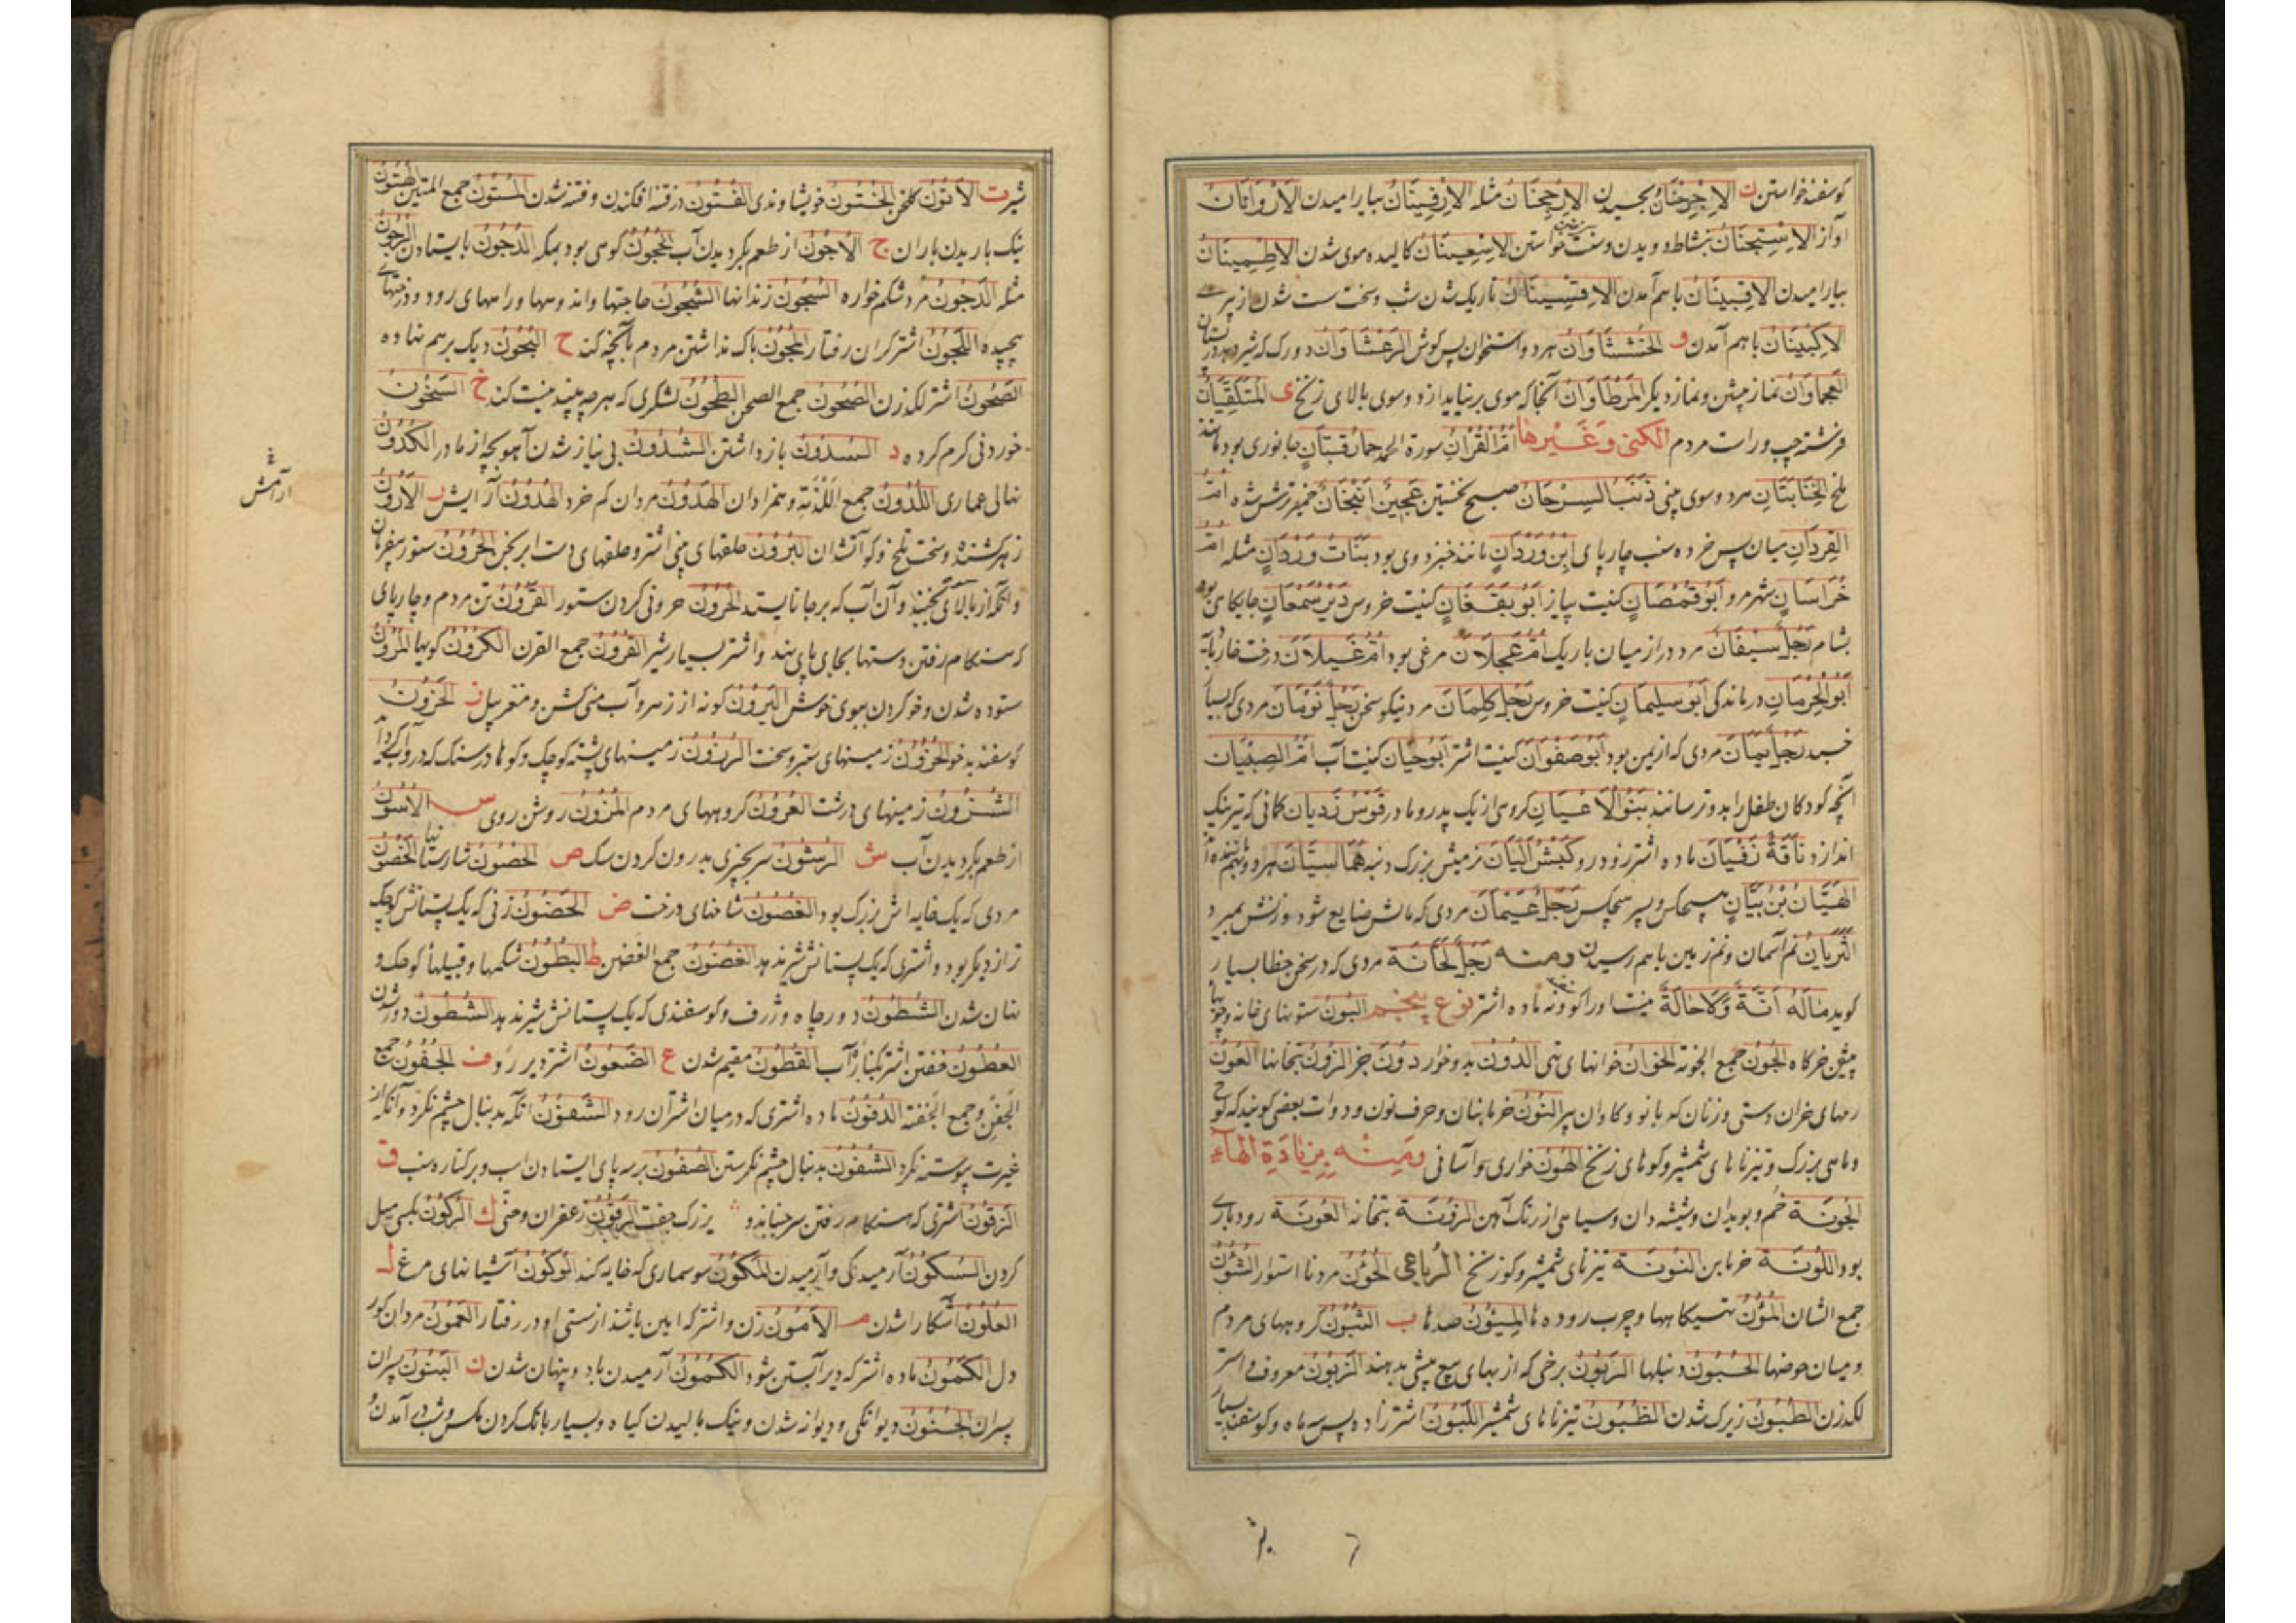 کوسفند خواستن ن الاِرْجِحْنَانُ بجسبیدن الاِرْجِحْنَانُ مثله الاِرْفِینَانُ بیارامیدن الاَرْوَانَانُ
آواز الاِسْتِیجَنَانُ بنشاط دویدن وسفت خواستن الاِسْعِینَانُ کالیده موی شدن الاِطْمِینَانُ
بیارامیدن الاِقْبِینَانُ باهم آمدن الاِقْسِینَانُ تاریک شدن شب وسخت سست شدن از پیری
الاِکْبِینَانُ باهم آمدن و الخُشَشَاوَانُ هر دو استخوان پس کوش الرَعْشَاوَانُ دو رک که شیر دهد در پستان
العَجْمَاوَانُ نماز پیشن ونماز دیکر المَرْطَاوَانُ آنجا که موی برنیاید از دو سوی بالای زنخ ی المُتَلَقِّیَانُ
فرشته چپ وراست مردم الکنی وَغَیْرها اُمُّ القُرْانِ سورة الحمد حمارُ قَبَّانٍ جانوری بود مانند
ملخ الخِنَّابَتَانِ هر دو سوی بینی ذَنَبُ السِرْحَانُ صبح نخستین عَجِینٌ اَنْبَخَانٌ خمیر ترش شده اُمُّ
القِرْدَانِ میان پس خرده سنب چارپای اِبْنُ وَرْدَانٍ مانند خبزدوی بود بَنَاتُ وَرْدَانٍ مثله اُمُّ
خُرَاسَانٍ شهر مرو اَبُو قَمْصَانٍ کنیت پیاز اَبُو یَقْظَانٍ کنیت خروس دَیْرُ سَمْعَانٍ جایکاهی بود
بشام رَجُلٌ سَیْفَانٌ مرد دراز میان باریک اُمُّ عَجْلَانَ مرغی بود اُمُّ غَیْلَانَ درخت خاردار
اَبُو الحِرْمَانِ درماندکی اَبُو سُلَیْمَانَ کنیت خروس رَجُلٌ کَلِمَانٌ مرد نیکو سخن رَجُلٌ نَوْمَانٌ مردی که بسیار
خسبد رَجُلٌ یَمَانٌ مردی که از یمن بود اَبُو صَفْوَانَ کنیت اشتر اَبُو حَیَّانَ کنیت آب اُمُّ الصِبْیَانِ
آنچه کودکان طفل را بدو ترسانند بَنُو الاَعْیَانِ کروهی از یک پدر ومادر قَوْسٌ زَدَیَانٌ کمانی که تیر نیک
اندازد نَاقَةٌ زَفَیَانٌ ماده اشتر زود رو کَبْشٌ اَلْیَانٌ نرمیش بزرک دنبه هُمَا سِیَّانِ هر دو مانند
الهَیَّانُ بْنُ بَیَّانٍ هیچکس وپسر هیچکس رَجُلٌ عَیْمَانٌ مردی که مالش ضایع شود وزنش بمیرد
الثَرَیَانُ نم آسمان ونم زمین باهم رسیدن ومنه رَجُلٌ لَحَّانَةٌ مردی که در سخن خطا بسیار
کوید مَالَهُ آنَّةٌ وَلَاحَانَّةٌ نیست اورا کوسفند ونه ماده اشتر نوع پنجم البُونُ ستونهای خانه
پیشین خرکاه الجُونُ جمع الجونة الخُوَانُ خوانهای تهی الدُونُ بد وخوار دُونَ جز الزُونُ بتخانها العُونُ
رمهای خران دشتی وزنان که بانو وکاوان پیر النُونُ خرمابنان وحرف نون ودوات بعضی کویند که لوح
وماهی بزرک وتیزنا های شمشیر وکوهای زنخ الهُونُ خواری وآسانی وَمِنْهُ بِزِیَادَةِ الهَآءِ
الجُونَةُ خم وبویدان وشیشه دان وسیاهی از رنک آهن الزُونَةُ بتخانه العُونَةُ رودباری
بود اللُونَةُ خرمابن النُونَةُ تیزنای شمشیر وکو زنخ الرُباعی الخُؤُنُ مرد نا استوار الشُؤُنُ
جمع الشان المُؤُنُ تهیکاهها وچرب روده ها المِیئُونُ صدها ب الثُبُونُ کروههای مردم
ومیان حوضها الحُبُونُ دنبلها الزَبُونُ برخی که از بهای بیع پیشی بدهند الزَبُونُ معروف واشتر
لکدزن الطُبُونُ زیرک شدن الظُبُونُ تیزنا های شمشیر اللَبُونُ اشتر زاده پس سه ماه وکوسفند بسیار
شیر ت الاَتُونُ کلخن الخُتُونُ خویشاوندی الفُتُونُ در فتنه افکندن وفتنه شدن المُتُونُ جمع المتن الهُتُونُ
نیک باریدن باران ج الاُجُونُ از طعم بکردیدن آب الحَجُونُ کوهی بود بمکه الدُجُونُ بایستادن الرُجُونُ
مثله الدَجُونُ مرد شکم خواره السُجُونُ زندانها الشُجُونُ حاجتها واندوهها وراههای رود ودرختهای
پیچیده اللَجُونُ اشتر کران رفتار المُجُونُ باک نداشتن مردم بآنچه کند ح الثُحُونُ دیک برهم نهاده
الصَحُونُ اشتر لکدزن الصُحُونُ جمع الصحن الطَحُونُ لشکری که هرچه بیند نیست کند خ السَخُونُ
خوردنی کرم کرده د السُدُونُ باز داشتن الشُدُونُ بی نیاز شدن آهو بچه از مادر الکُدُونُ
نهالی عماری اللُدُونُ جمع اللَّدْنَة وهمزادان الهُدُونُ مردان کم خرد الهُدُونُ آرایش ر الاَرُونُ
آرامش
زهر کشنده وسخت تلخ وکو آتشدان البُرُونُ حلقهای بینی اشتر وحلقهای دست ابرنجن الحَرُونُ ستور بیفرمان
وآنکه از بالای نجنبد وآن آب که برجا نایستد الحُرُونُ حرونی کردن ستور القَرُونُ تن مردم وچارپای
که هنکام رفتن دستها بجای پای نهد واشتر بسیار شیر القُرُونُ جمع القرن الکُرُونُ کوبها المُرُونُ
ستوده شدن وخو کردن ببوی خوش الیَرُونُ کونه از زهر وآب منی کشن ومغز پیل ز الحَزُونُ
کوسفند بدخو الحُزُونُ زمینهای ستبر وسخت الرُزُونُ زمینهای پشته کوچک وکوها در سنک که درو آب کرد آید
الشُزُونُ زمینهای درشت العُزُونُ کروههای مردم المُزُونُ روشن روی س الاُسُونُ
از طعم بکردیدن آب ش الرُشُونُ سر بچیزی بدرون کردن سک ص الحُصُونُ شارستانها الخَصُونُ
مردی که یک خایه اش بزرک بود الغُصُونُ شاخهای درخت ض الحَضُونُ زنی که یک پستانش کوچک
تر از دیکر بود واشتری که یک پستانش شیر ندهد الغُضُونُ جمع الغضن ط البُطُونُ شکمها وقبیلهاء کوچک و
نهان شدن الشَطُونُ دور چاه وژرف وکوسفندی که یک پستانش شیر ندهد الشُطُونُ دور شدن
العُطُونُ خفتن اشتر بکنار آب القُطُونُ مقیم شدن ع الضَعُونُ اشتر دیررو ف الجُفُونُ جمع
الجَفْنِ وجمع الجَفْنَة الدَفُونُ ماده اشتری که در میان اشتران رود الشَفُونُ آنکه بدنبال چشم نکرد وآنکه از
غیرت پیوسته نکرد الشُفُونُ بدنبال چشم نکرستن الصُفُونُ بر سه پای ایستادن اسب وبر کناره سنب ق
الزَقُونُ اشتری که هنکام رفتن سر جنباند و بزرک جفت الرَقُونُ زعفران وحنی ک الرُکُونُ بکسی میل
کردن السُکُونُ آرمیدکی وآرمیدن المَکُونُ سوسماری که خایه کند الوُکُونُ آشیانهای مرغ ل
العُلُونُ آشکارا شدن م الاَمُونُ زن واشتر که ایمن باشند از سستی او در رفتار العَمُونُ مردان کور
دل الکَمُونُ ماده اشتر که دیر آبستن شود الکُمُونُ آرمیدن باد وپنهان شدن ن البَنُونُ پسران
پسران الجُنُونُ دیوانکی ودیوانه شدن ونیک بالیدن کیاه وبسیار بانک کردن مکس وشب در آمدن